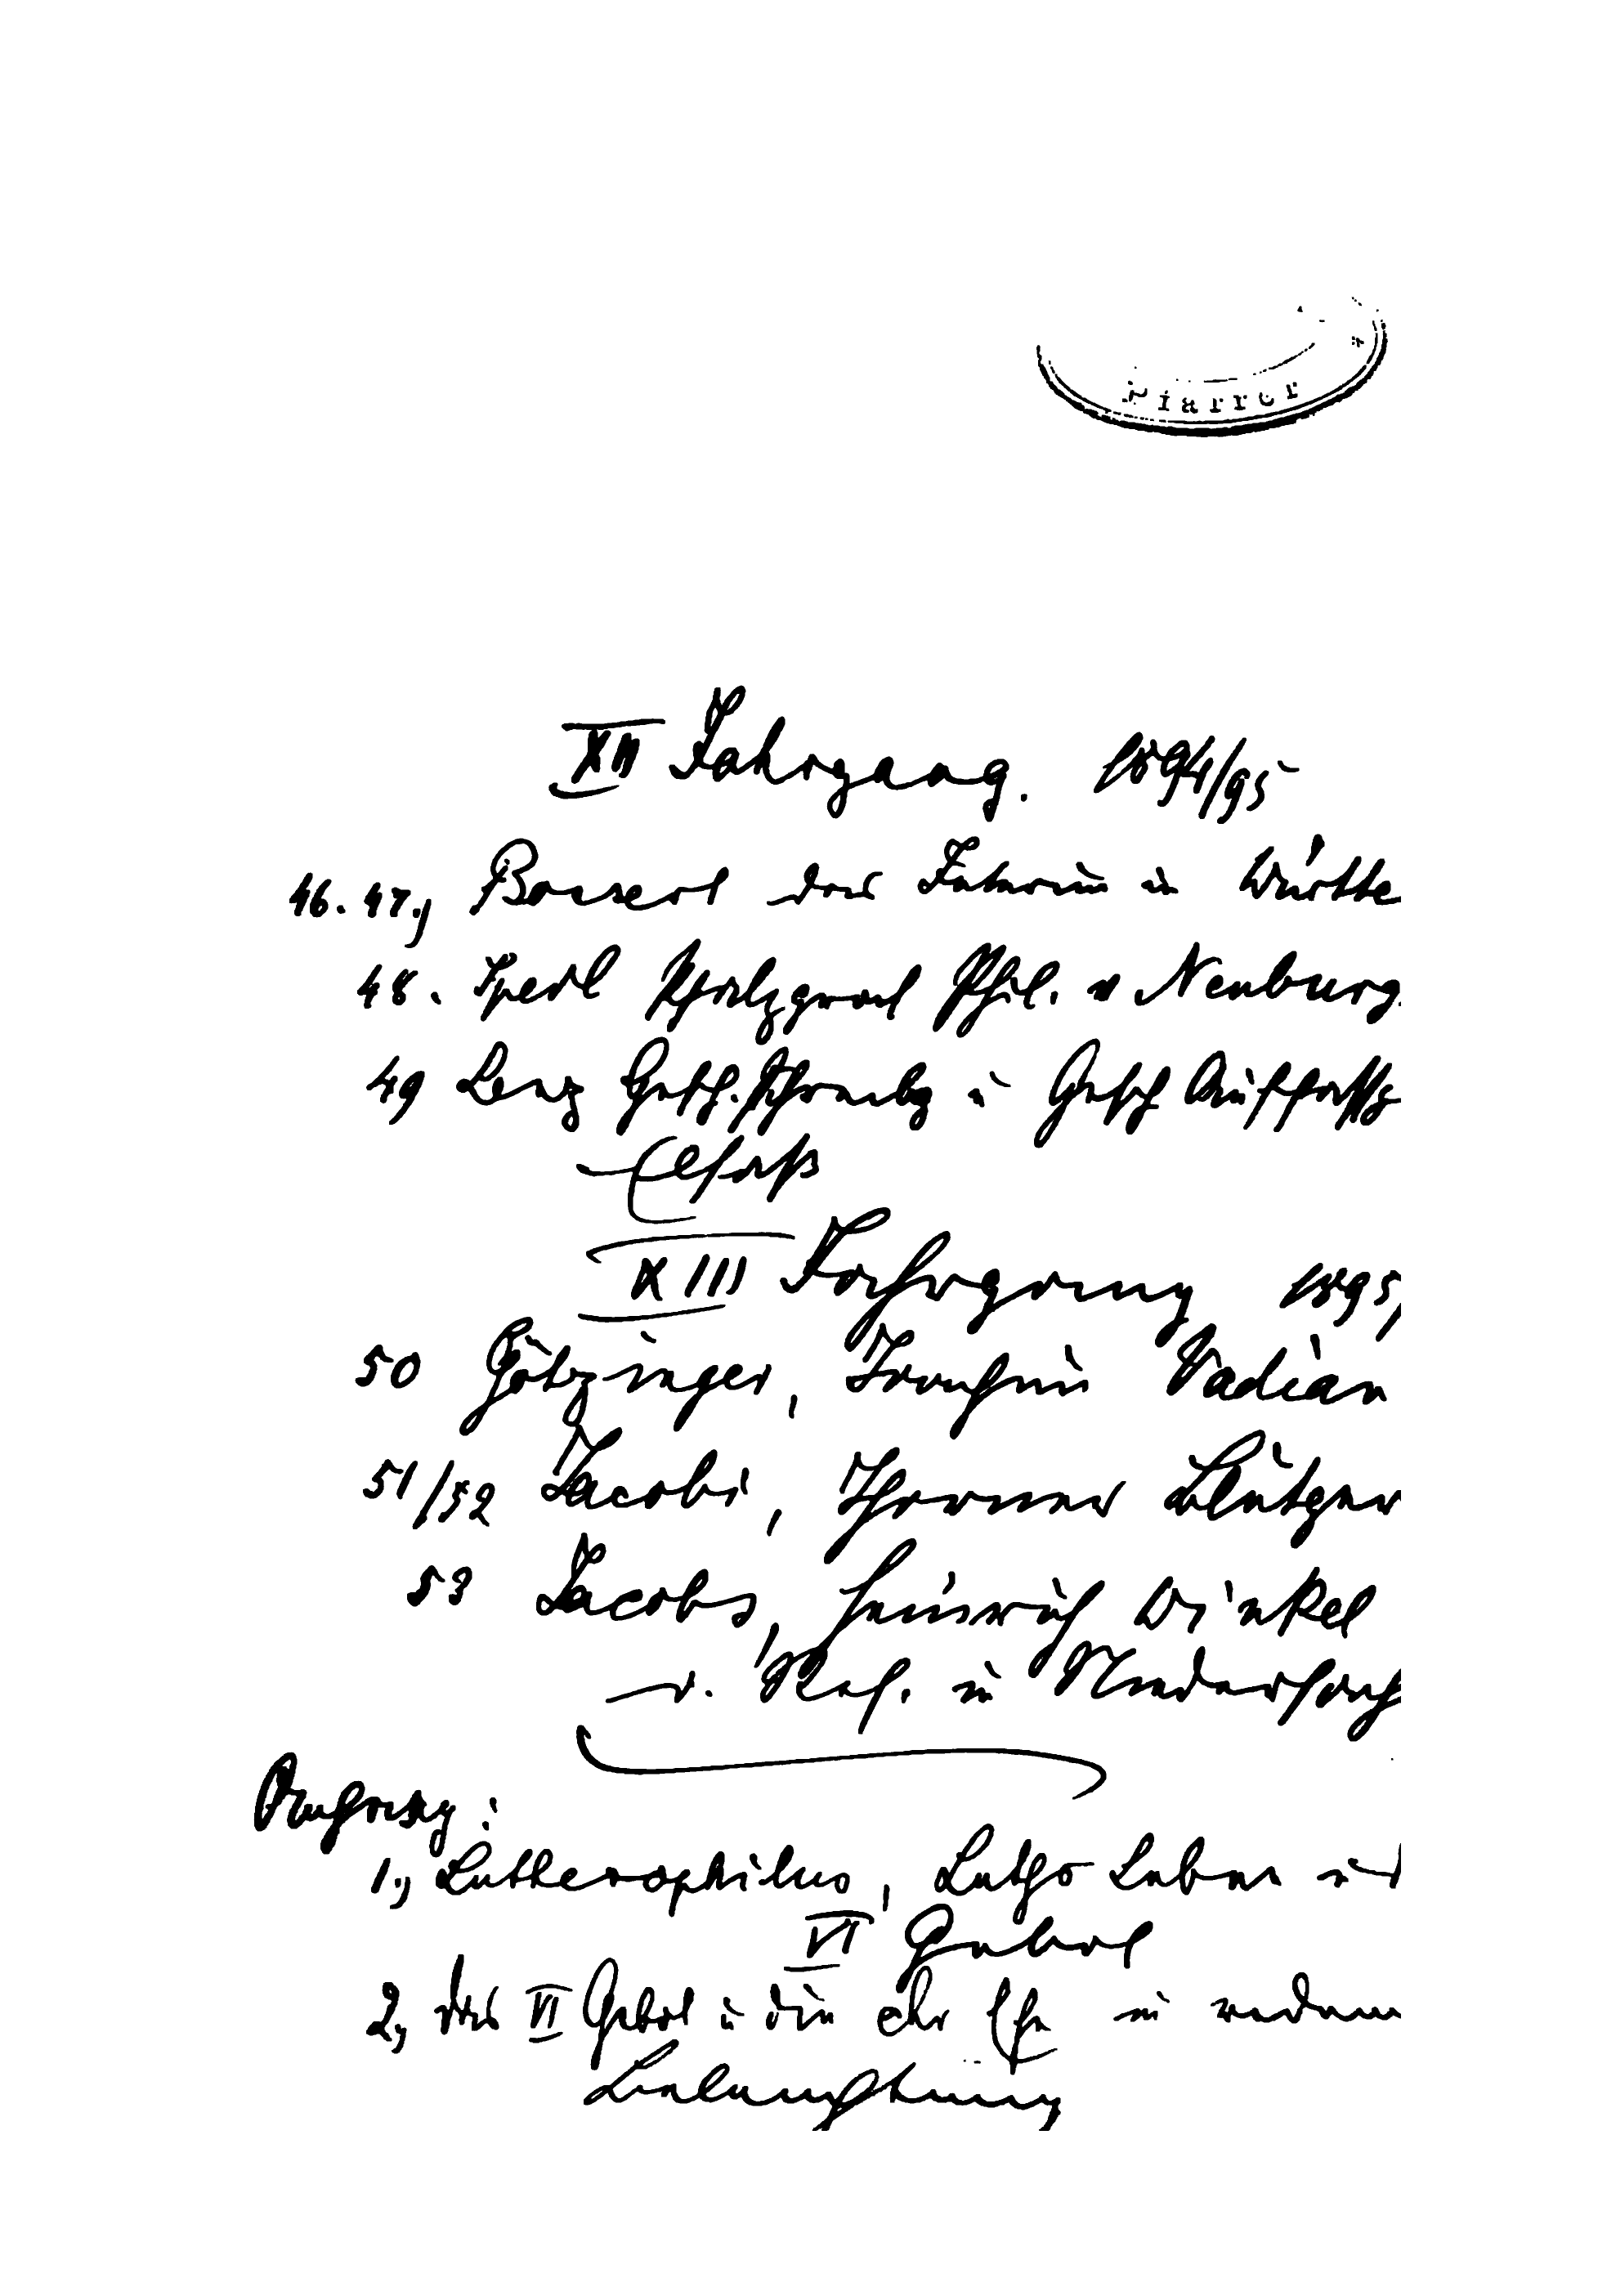 Pfarrer
XII Jahrgang. 1894/95
46. 47., Bossert das Interim in Württe
48. Sperl Pfalzgraf Phil. v Neuburg.
49 Lenz Gesch. Schreibg u Gesch Auffassg
Elsaß
XIII Jahrgang 1895/
50 Götzinger, Joachim Vadian
51/52 Jacobi, Thorner Blutger
53 Jacobs, Heinrich Winkel
d. Ref. in Niedersach
Anhang:
1., Lutherophilus, Luthers Leben
VI Gebot
2, das VI Gebot u die Ehe in
Beleuchtung